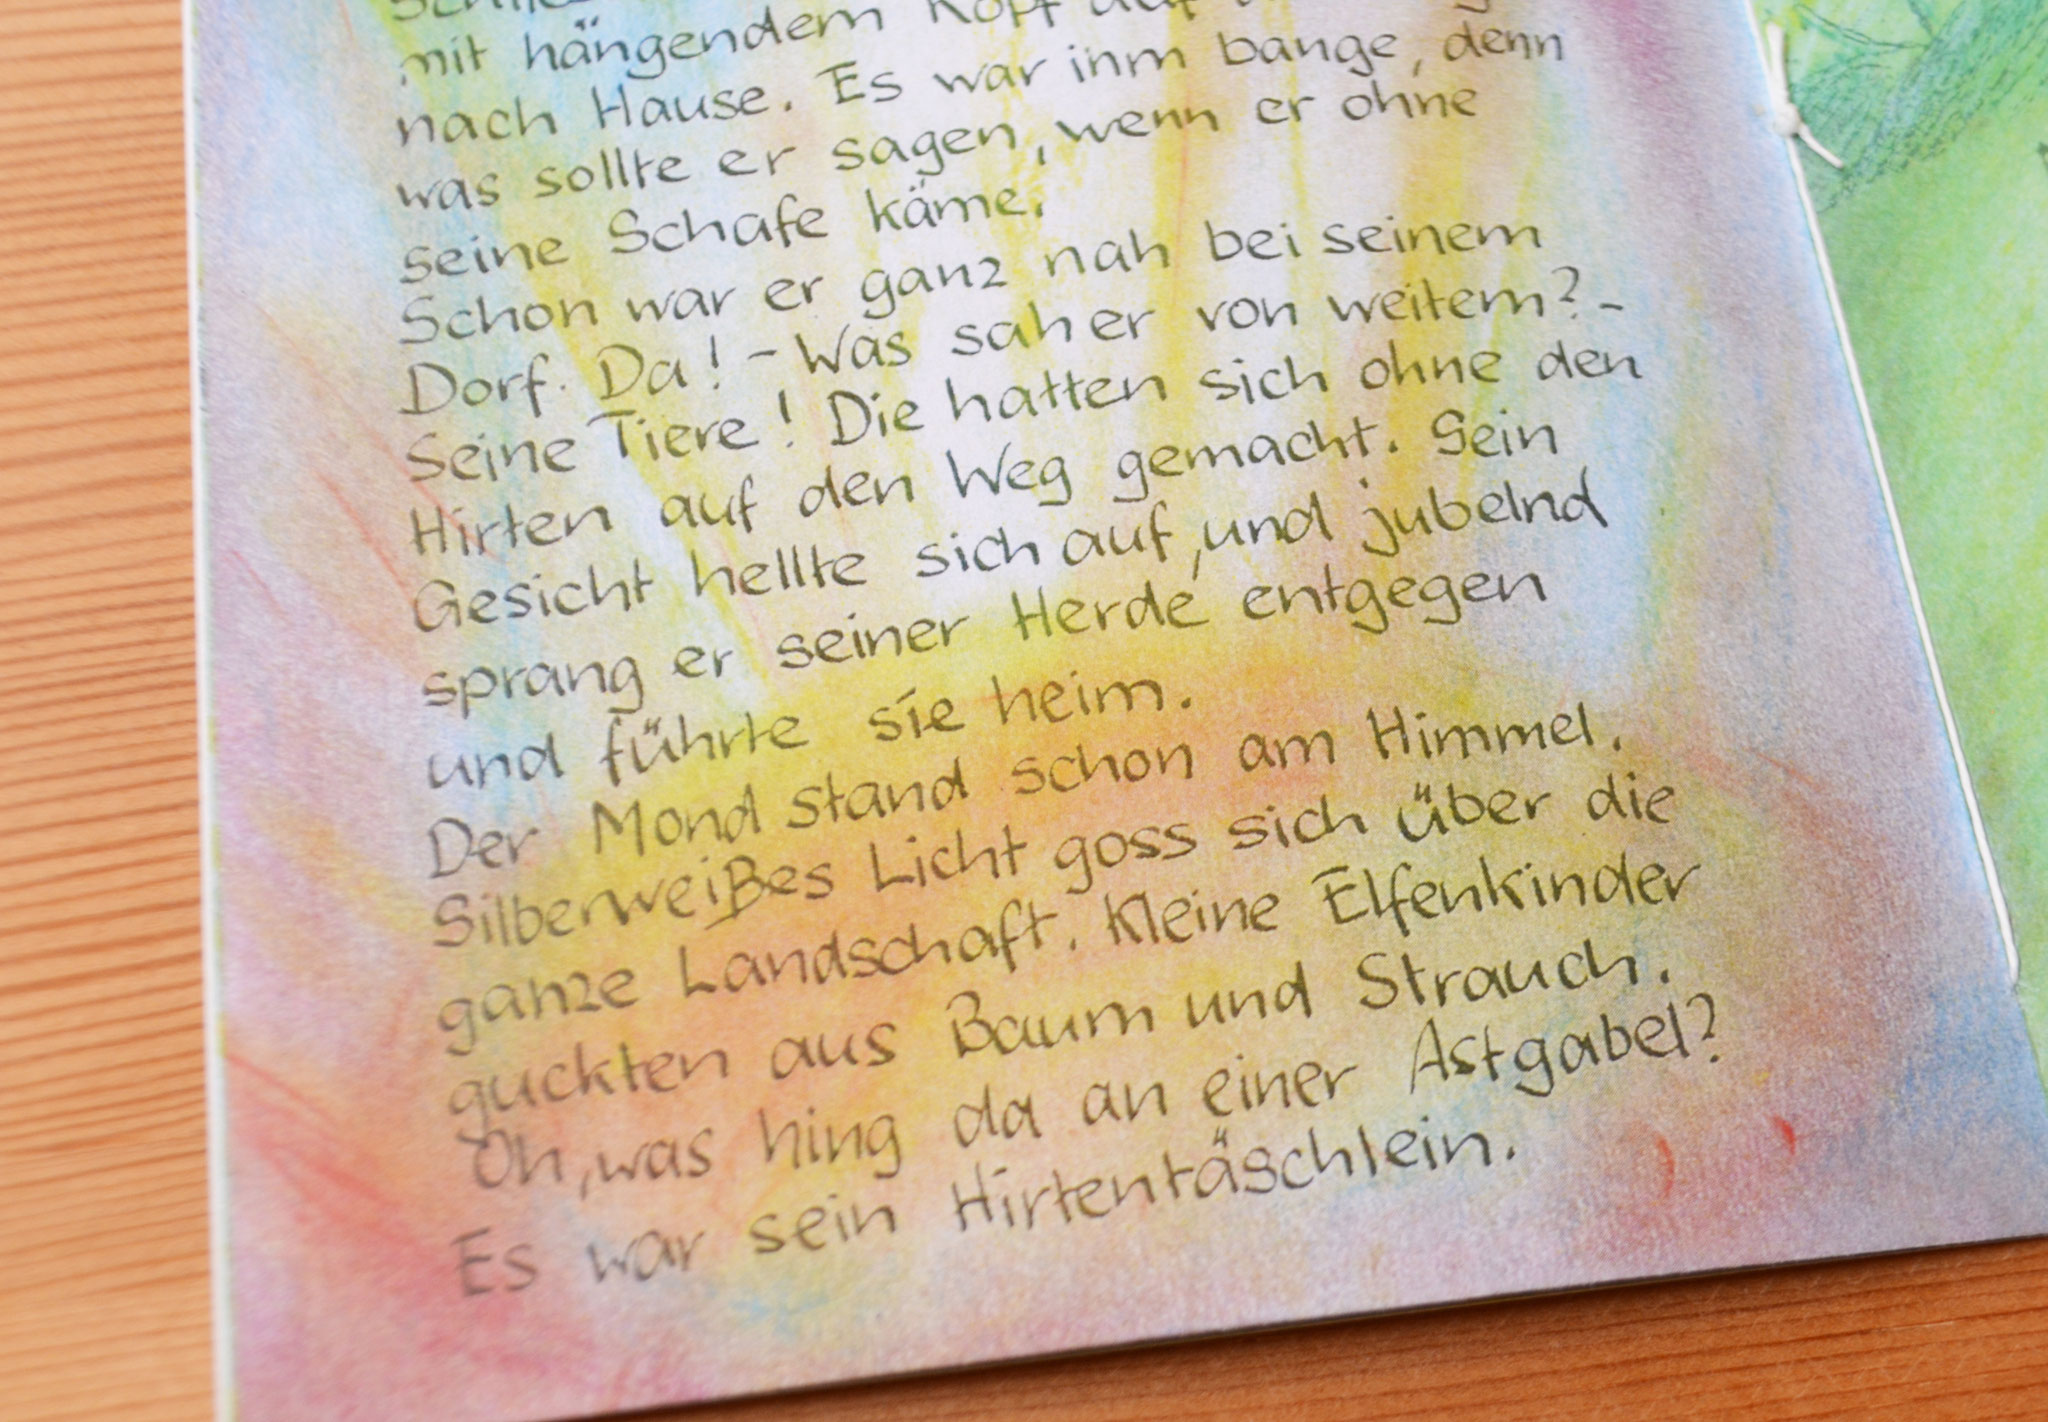 mit hängendem Kopf auf
nach Hause. Es war ihm bange, denn
was sollte er sagen, wenn er ohne
seine Schafe käme.
Schon war er ganz nah bei seinem
Dorf. Da! - Was sah er von weitem? -
Seine Tiere! Die hatten sich ohne den
Hirten auf den Weg gemacht. Sein
Gesicht hellte sich auf, und jubelnd
sprang er seiner Herde entgegen
und führte sie heim.
Der Mond stand schon am Himmel.
Silberweißes Licht goss sich über die
ganze Landschaft. Kleine Elfenkinder
guckten aus Baum und Strauch.
Oh, was hing da an einer Astgabel?
Es war sein Hirtentäschlein.